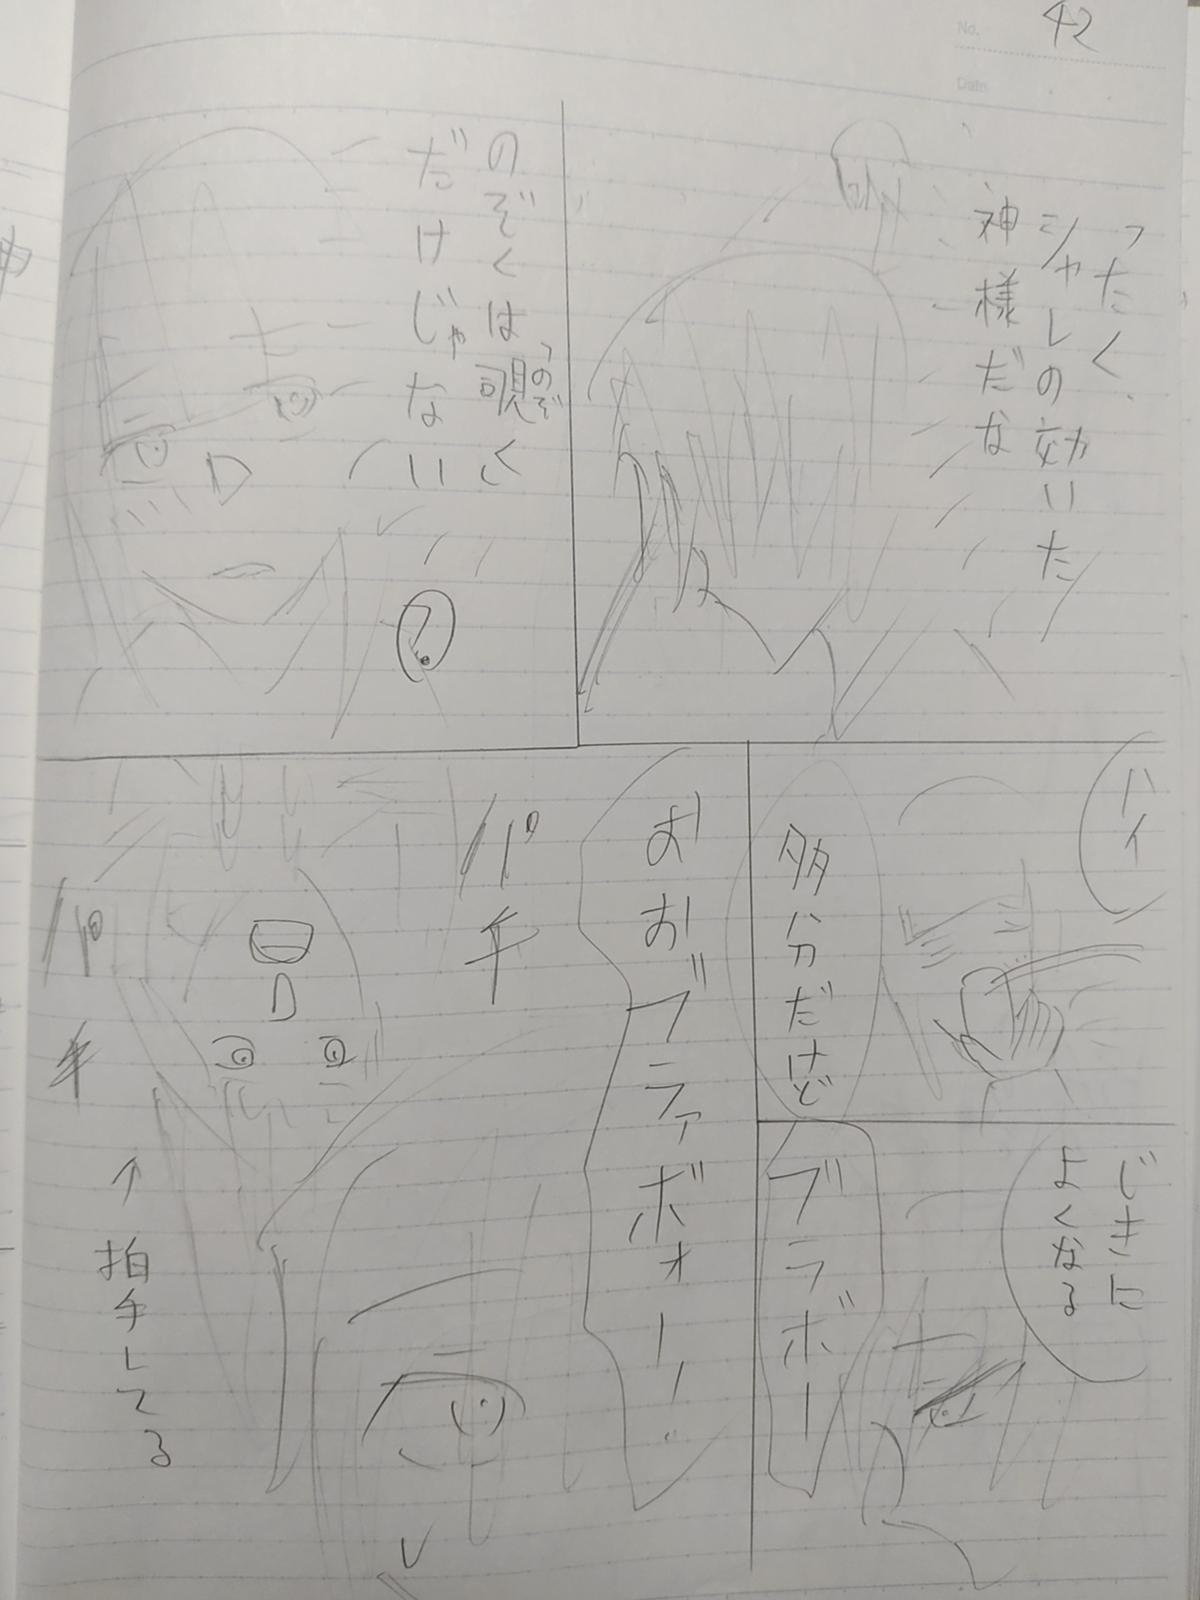 No. 42
Date
ったく、
シャレの効いた
神様だな
のぞくは、覗く
のぞ
だけじゃない
?
ハイ
多分だけど
じきに
よくなる
ブラボー
おおブラァボォー!!
パチ
パチ
↑拍手してる